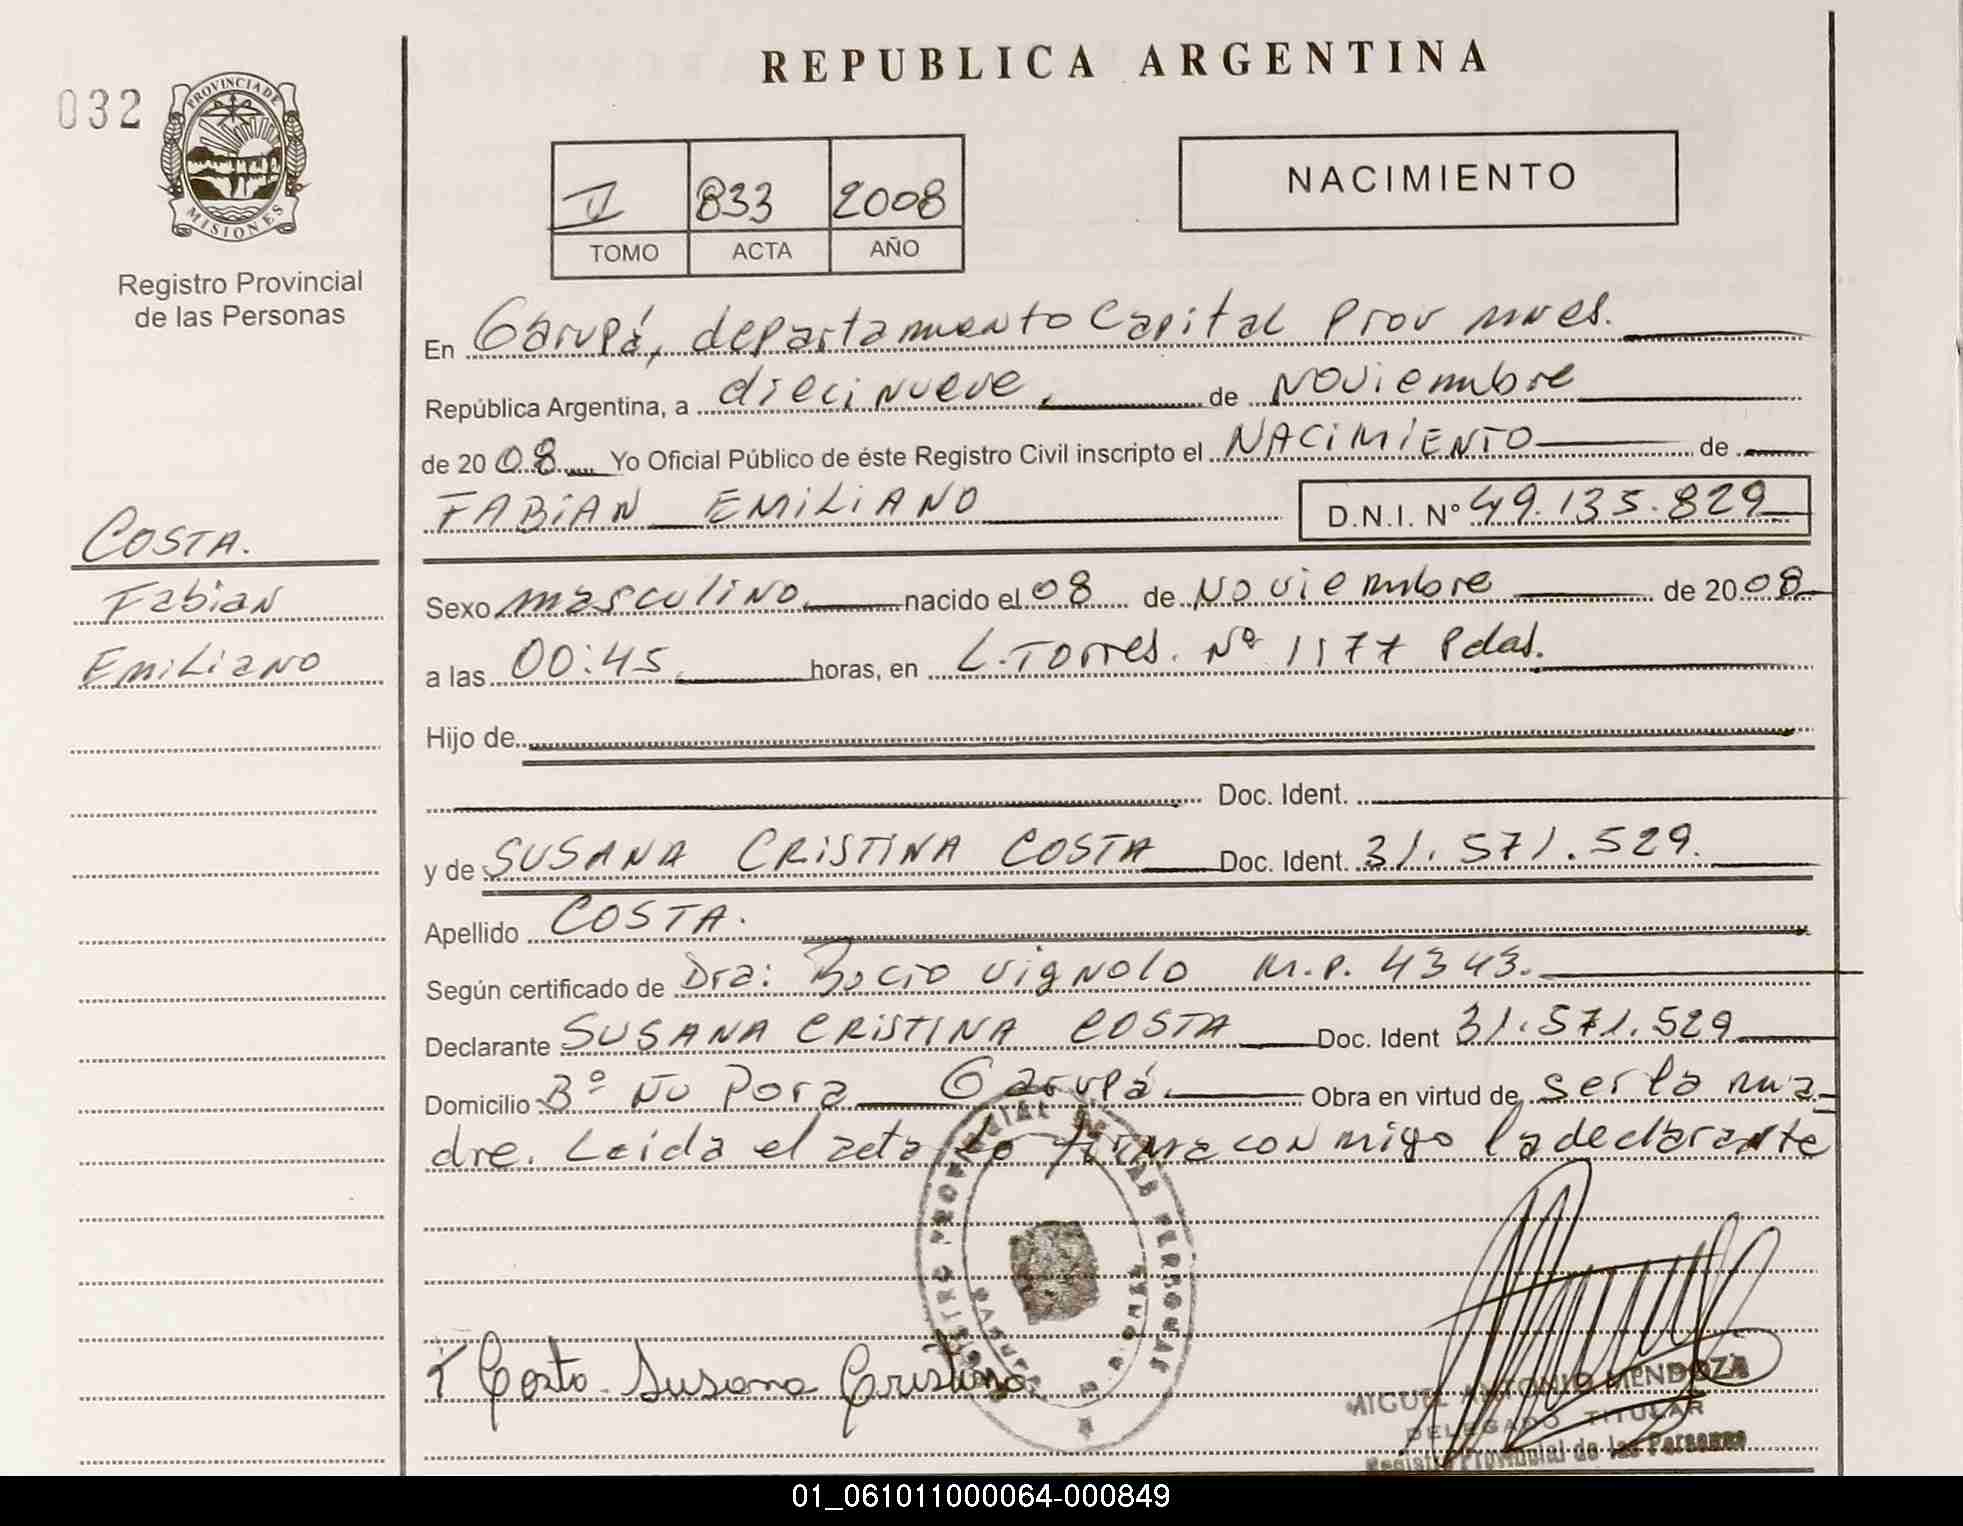 REPUBLICA ARGENTINA
032
PROVINCIA DE
MISIONES
Registro Provincial
de las Personas
II 833 2008
TOMO ACTA AÑO
NACIMIENTO
En Garupá, departamento Capital Prov mnes.
República Argentina, a diecinueve, de Noviembre
de 2008 Yo Oficial Público de éste Registro Civil inscripto el NACIMIENTO de
FABIAN EMILIANO D.N.I. Nº 49.135.829
COSTA.
Fabian
Emiliano
Sexo masculino nacido el 08 de Noviembre de 2008
a las 00:45 horas, en L. Torres. Nº 1177 Pdas.
Hijo de
Doc. Ident.
y de SUSANA CRISTINA COSTA Doc. Ident. 31.571.529.
Apellido COSTA.
Según certificado de Dra: Rocio Vignolo M.P. 4343.
Declarante SUSANA CRISTINA COSTA Doc. Ident 31.571.529
Domicilio Bº Ñu Pora Garupá Obra en virtud de ser la ma=
dre. Leida el acta lo firma conmigo la declarante
REGISTRO PROVINCIAL DE LAS PERSONAS
Costa Susana Cristina
MIGUEL ANTONIO MENDOZA
DELEGADO TITULAR
Registro Provincial de las Personas
01_061011000064-000849